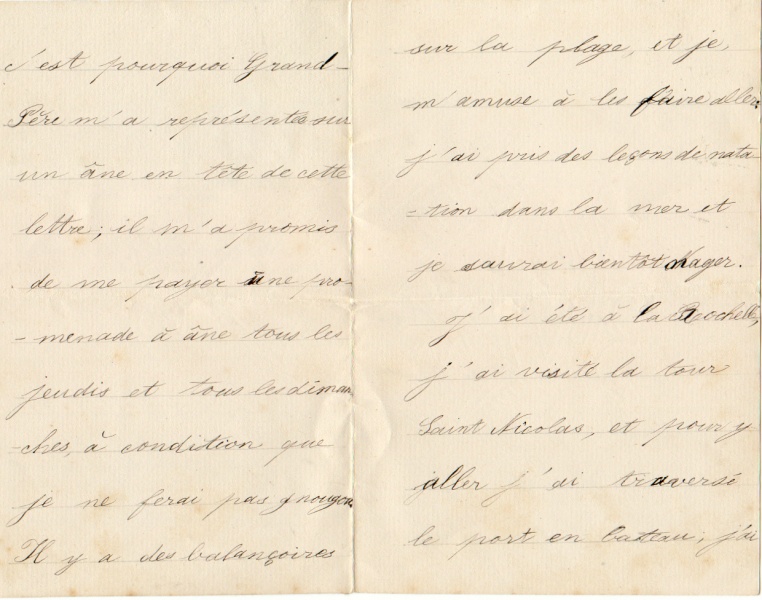 c'est pourquoi Grand-
Père m'a représenté sur
un âne en tête de cette
lettre; il m'a promis
de me payer une pro-
-menade à âne tous les
jeudis et tous les diman
-ches, à condition que
je ne ferai pas
Il y a des balançoires
sur la plage, et je,
m'amuse à les faire aller.
j'ai pris des leçons de nata
=tion dans la mer et
je saurai bientôt Nager.
J'ai été à la Rochelle,
j'ai visité la tour
Saint Nicolas, et pour y
aller j'ai traversé
le port en bateau; j'ai